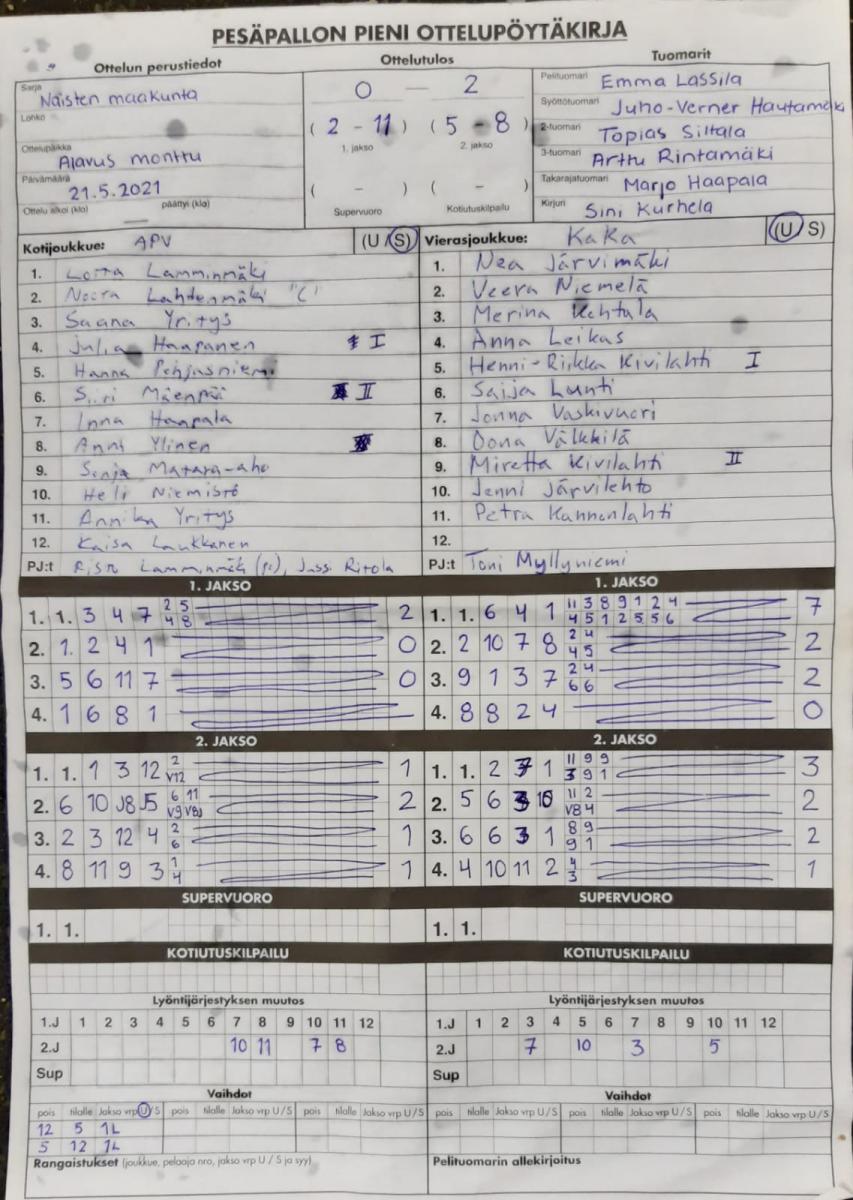 PESÄPALLON PIENI OTTELUPÖYTÄKIRJA
Ottelun perustiedot
Sarja
Naisten maakunta
Lohko
Ottelupaikka
Alavus monttu
Päivämäärä
21.5.2021
Ottelu alkoi (klo) päättyi (klo)
Ottelutulos
0 — 2
( 2 - 11 ) ( 5 - 8 )
1. jakso 2. jakso
( - ) ( - )
Supervuoro Kotiutuskilpailu
Tuomarit
Pelituomari Emma Lassila
Syöttötuomari Juho-Verner Hautamäki
2-tuomari Topias Siltala
3-tuomari Arttu Rintamäki
Takarajatuomari Marjo Haapala
Kirjuri Sini Kurhela
Kotijoukkue: APV (U / S)
1. Lotta Lamminmäki
2. Noora Lahdenmäki "C"
3. Saana Yritys
4. Julia Haapanen I
5. Hanna Pohjasniemi
6. Siiri Mäenpää II
7. Inna Haapala
8. Anni Ylinen
9. Senja Matara-aho
10. Heli Niemistö
11. Annika Yritys
12. Kaisa Laukkanen
PJ:t Risto Lamminmäki (pj), Jussi Ritola
Vierasjoukkue: KaKa (U / S)
1. Nea Järvimäki
2. Veera Niemelä
3. Merina Kehtala
4. Anna Leikas
5. Henni-Riikka Kivilahti I
6. Saija Lunti
7. Jonna Vaskivuori
8. Oona Välkkilä
9. Miretta Kivilahti II
10. Jenni Järvilehto
11. Petra Kannenlahti
12.
PJ:t Toni Myllyniemi
1. JAKSO
1. 1. 3 4 7 2 5 2
4 8
2. 1. 2 4 1 0
3. 5 6 11 7 0
4. 1 6 8 1
1. JAKSO
1. 1. 6 4 1 11 3 8 9 1 2 4 7
4 5 1 2 5 5 6
2. 2 10 7 8 2 4 2
4 5
3. 9 1 3 7 2 4 2
6 6
4. 8 8 2 4 0
2. JAKSO
1. 1. 1 3 12 2 1
V12
2. 6 10 J8 J5 6 11 2
V9 V8J
3. 2 3 12 4 2 1
6
4. 8 11 9 3 1 1
4
2. JAKSO
1. 1. 2 3 1 11 9 9 3
3 9 1
2. 5 6 3 10 11 2 2
V8 4
3. 6 6 3 1 8 9 2
9 1
4. 4 10 11 2 4 1
3
SUPERVUORO
1. 1.
SUPERVUORO
1. 1.
KOTIUTUSKILPAILU
KOTIUTUSKILPAILU
Lyöntijärjestyksen muutos
1.J 1 2 3 4 5 6 7 8 9 10 11 12
2.J 10 11 7 8
Sup
Lyöntijärjestyksen muutos
1.J 1 2 3 4 5 6 7 8 9 10 11 12
2.J 7 10 3 5
Sup
Vaihdot
pois tilalle Jakso vrp U / S pois tilalle Jakso vrp U / S pois tilalle Jakso vrp U / S
12 5 1L
5 12 1L
Rangaistukset (joukkue, pelaaja nro, jakso vrp U / S ja syy)
Vaihdot
pois tilalle Jakso vrp U / S pois tilalle Jakso vrp U / S pois tilalle Jakso vrp U / S
Pelituomarin allekirjoitus